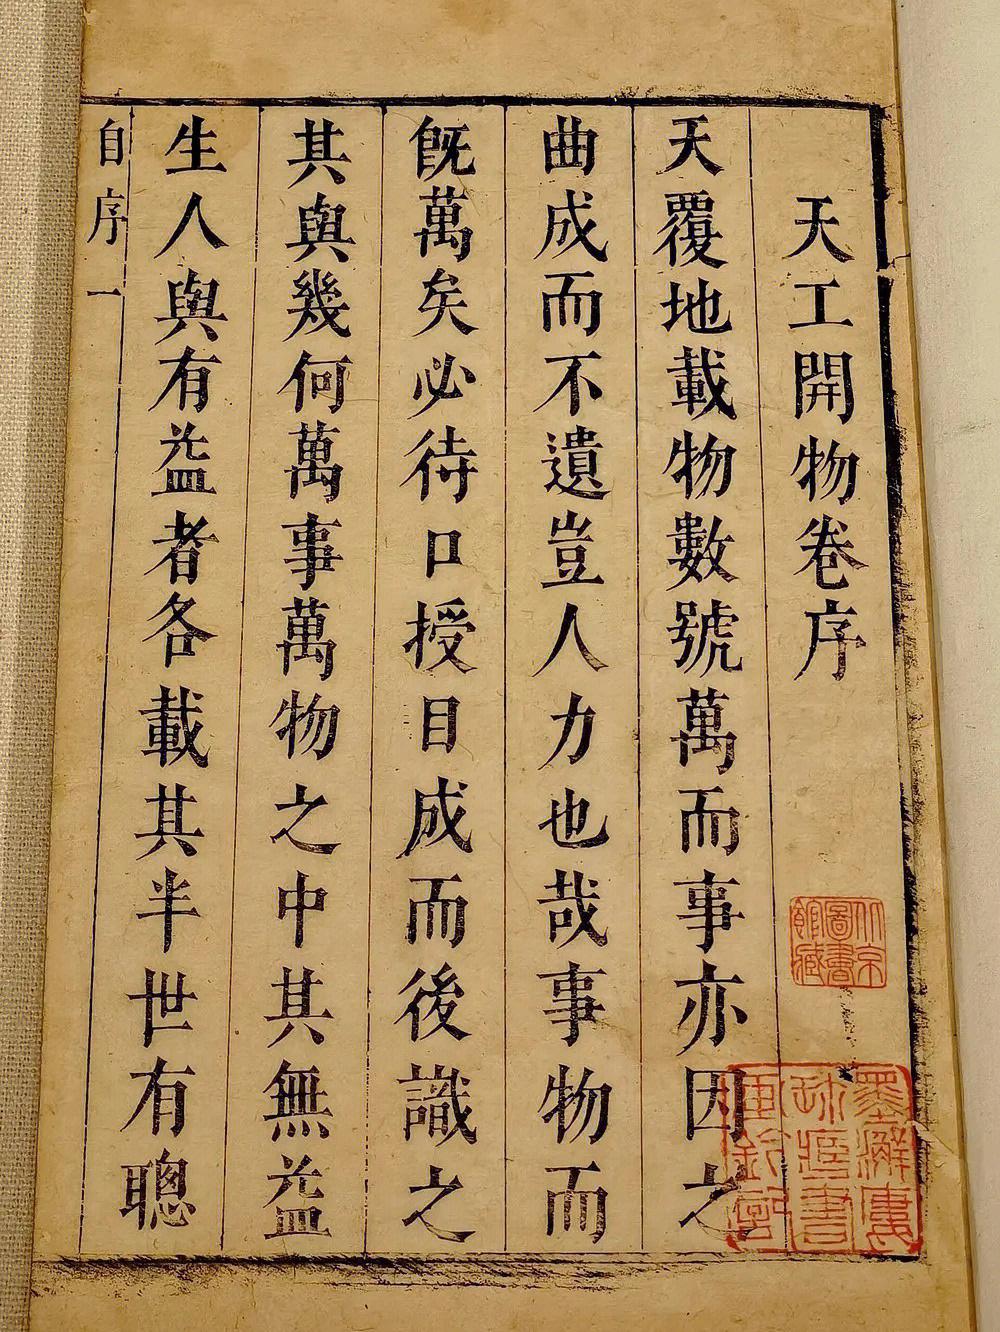 天工開物卷序
天覆地載物數號萬而事亦因之
曲成而不遺豈人力也哉事物而
既萬矣必待口授目成而後識之
其與幾何萬事萬物之中其無益
生人與有益者各載其半世有聰
自序
一
北京
圖書
館藏